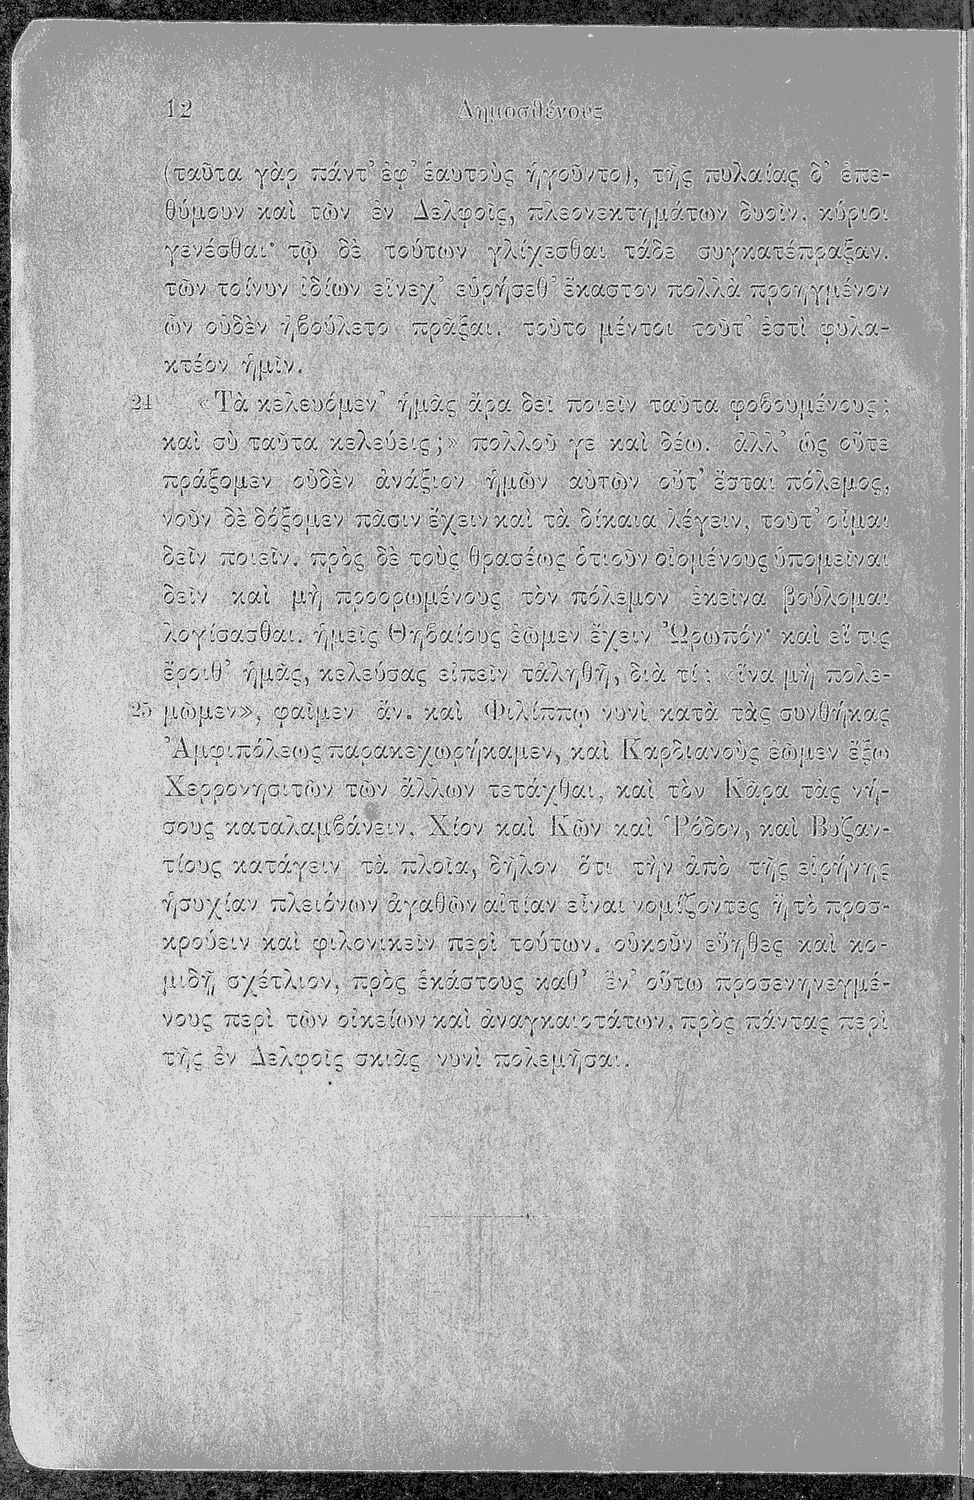 12 Δημοσθένους
(ταῦτα γὰρ πάντ’ ἐφ’ ἑαυτοὺς ἡγοῦντο), τῆς πυλαίας δ’ ἐπε-
θύμουν καὶ τῶν ἐν Δελφοῖς, πλεονεκτημάτων δυοῖν, κύριοι
γενέσθαι· τῷ δὲ τούτων γλίχεσθαι τάδε συγκατέπραξαν.
τῶν τοίνυν ἰδίων εἵνεχ’ εὑρήσεθ’ ἕκαστον πολλὰ προηγμένον
ὧν οὐδὲν ἠβούλετο πρᾶξαι. τοῦτο μέντοι τοῦτ’ ἐστὶ φυλα-
κτέον ἡμῖν.
24 «Τὰ κελευόμεν’ ἡμᾶς ἄρα δεῖ ποιεῖν ταῦτα φοβουμένους;
καὶ σὺ ταῦτα κελεύεις;» πολλοῦ γε καὶ δέω. ἀλλ’ ὡς οὔτε
πράξομεν οὐδὲν ἀνάξιον ἡμῶν αὐτῶν οὔτ’ ἔσται πόλεμος,
νοῦν δὲ δόξομεν πᾶσιν ἔχειν καὶ τὰ δίκαια λέγειν, τοῦτ’ οἶμαι
δεῖν ποιεῖν. πρὸς δὲ τοὺς θρασέως ὁτιοῦν οἰομένους ὑπομεῖναι
δεῖν καὶ μὴ προορωμένους τὸν πόλεμον ἐκεῖνα βούλομαι
λογίσασθαι. ἡμεῖς Θηβαίους ἐῶμεν ἔχειν Ὠρωπόν· καὶ εἴ τις
ἔροιθ’ ἡμᾶς, κελεύσας εἰπεῖν τἀληθῆ, διὰ τί; «ἵνα μὴ πολε-
25 μῶμεν», φαῖμεν ἄν. καὶ Φιλίππῳ νυνὶ κατὰ τὰς συνθήκας
Ἀμφιπόλεως παρακεχωρήκαμεν, καὶ Καρδιανοὺς ἐῶμεν ἔξω
Χερρονησιτῶν τῶν ἄλλων τετάχθαι, καὶ τὸν Κᾶρα τὰς νή-
σους καταλαμβάνειν, Χίον καὶ Κῶν καὶ Ῥόδον, καὶ Βυζαν-
τίους κατάγειν τὰ πλοῖα, δῆλον ὅτι τὴν ἀπὸ τῆς εἰρήνης
ἡσυχίαν πλειόνων ἀγαθῶν αἰτίαν εἶναι νομίζοντες ἢ τὸ προσ-
κρούειν καὶ φιλονικεῖν περὶ τούτων. οὐκοῦν εὔηθες καὶ κο-
μιδῇ σχέτλιον, πρὸς ἑκάστους καθ’ ἕν’ οὕτω προσενηνεγμέ-
νους περὶ τῶν οἰκείων καὶ ἀναγκαιοτάτων, πρὸς πάντας περὶ
τῆς ἐν Δελφοῖς σκιᾶς νυνὶ πολεμῆσαι.